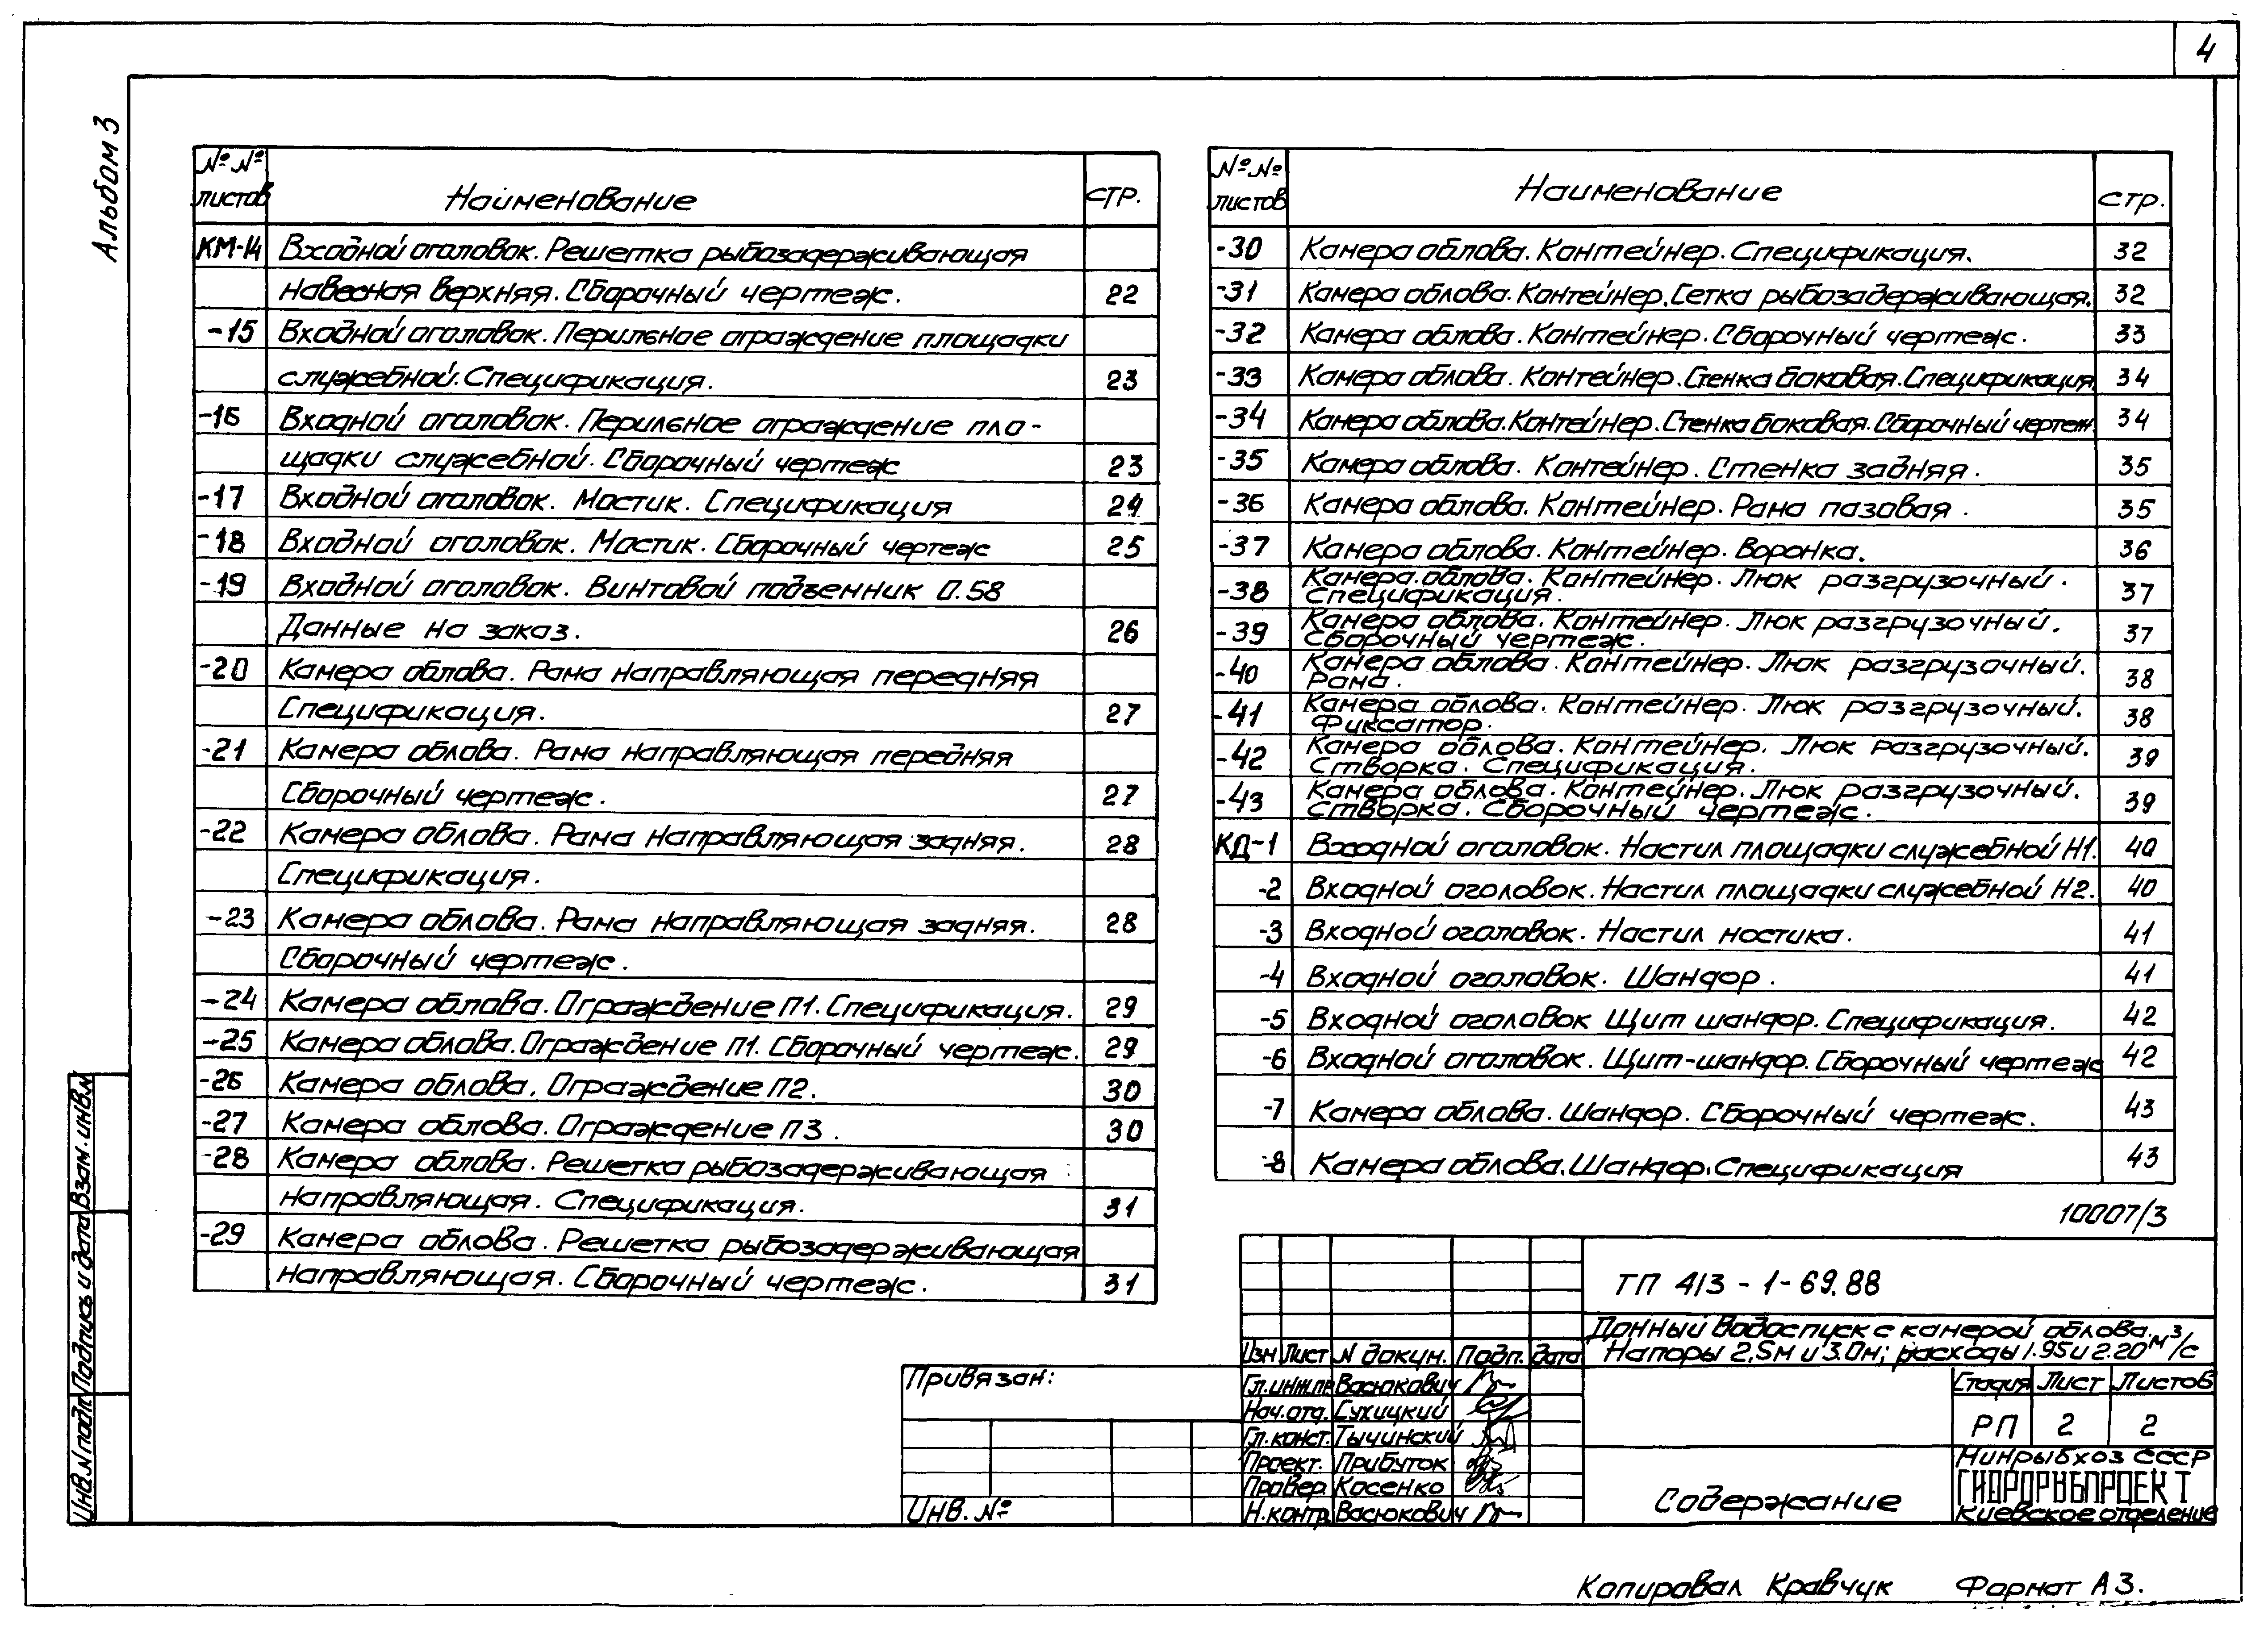 4
Альбом 3
№ №
листов
Наименование
стр.
КМ-14 Входной оголовок. Решетка рыбозадерживающая
навесная верхняя. Сборочный чертеж. 22
-15 Входной оголовок. Перильное ограждение площадки
служебной. Спецификация. 23
-16 Входной оголовок. Перильное ограждение пло-
щадки служебной. Сборочный чертеж 23
-17 Входной оголовок. Мостик. Спецификация 24
-18 Входной оголовок. Мостик. Сборочный чертеж 25
-19 Входной оголовок. Винтовой подъемник 0.58
Данные на заказ. 26
-20 Камера облова. Рама направляющая передняя
Спецификация. 27
-21 Камера облова. Рама направляющая передняя
Сборочный чертеж. 27
-22 Камера облова. Рама направляющая задняя. 28
Спецификация.
-23 Камера облова. Рама направляющая задняя. 28
Сборочный чертеж.
-24 Камера облова. Ограждение П1. Спецификация. 29
-25 Камера облова. Ограждение П1. Сборочный чертеж. 29
-26 Камера облова. Ограждение П2. 30
-27 Камера облова. Ограждение П3. 30
-28 Камера облова. Решетка рыбозадерживающая
направляющая. Спецификация. 31
-29 Камера облова. Решетка рыбозадерживающая
направляющая. Сборочный чертеж. 31
№ №
листов
Наименование
стр.
-30 Камера облова. Контейнер. Спецификация. 32
-31 Камера облова. Контейнер. Сетка рыбозадерживающая. 32
-32 Камера облова. Контейнер. Сборочный чертеж. 33
-33 Камера облова. Контейнер. Стенка боковая. Спецификация 34
-34 Камера облова. Контейнер. Стенка боковая. Сборочный чертеж. 34
-35 Камера облова. Контейнер. Стенка задняя. 35
-36 Камера облова. Контейнер. Рама пазовая. 35
-37 Камера облова. Контейнер. Воронка. 36
-38 Камера облова. Контейнер. Люк разгрузочный.
Спецификация. 37
-39 Камера облова. Контейнер. Люк разгрузочный.
Сборочный чертеж. 37
-40 Камера облова. Контейнер. Люк разгрузочный.
Рама. 38
-41 Камера облова. Контейнер. Люк разгрузочный.
Фиксатор. 38
-42 Камера облова. Контейнер. Люк разгрузочный.
Створка. Спецификация. 39
-43 Камера облова. Контейнер. Люк разгрузочный.
Створка. Сборочный чертеж. 39
КД-1 Входной оголовок. Настил площадки служебной Н1. 40
-2 Входной оголовок. Настил площадки служебной Н2. 40
-3 Входной оголовок. Настил мостика. 41
-4 Входной оголовок. Шандор. 41
-5 Входной оголовок Щит шандор. Спецификация. 42
-6 Входной оголовок. Щит-шандор. Сборочный чертеж 42
-7 Камера облова. Шандор. Сборочный чертеж. 43
-8 Камера облова. Шандор. Спецификация 43
10007/3
ТП 413-1-69.88
Донный водоспуск с камерой облова.
Напоры 2,5м и 3.0м; расходы 1.95 и 2.20 м³/с
Изм Лист N докум. Подп. Дата
Гл.инж.пр Васюкович
Нач.отд. Сухицкий
Гл.конст. Тычинский
Проект. Прибуток
Провер. Косенко
Н.контр. Васюкович
Стадия Лист Листов
РП 2 2
Содержание
Минрыбхоз СССР
ГИДРОРЫБПРОЕКТ
Киевское отделение
Привязан:
Инв. №
Взам. инв. N
Подпись и дата
Инв. N подл.
Копировал Кравчук Формат А3.